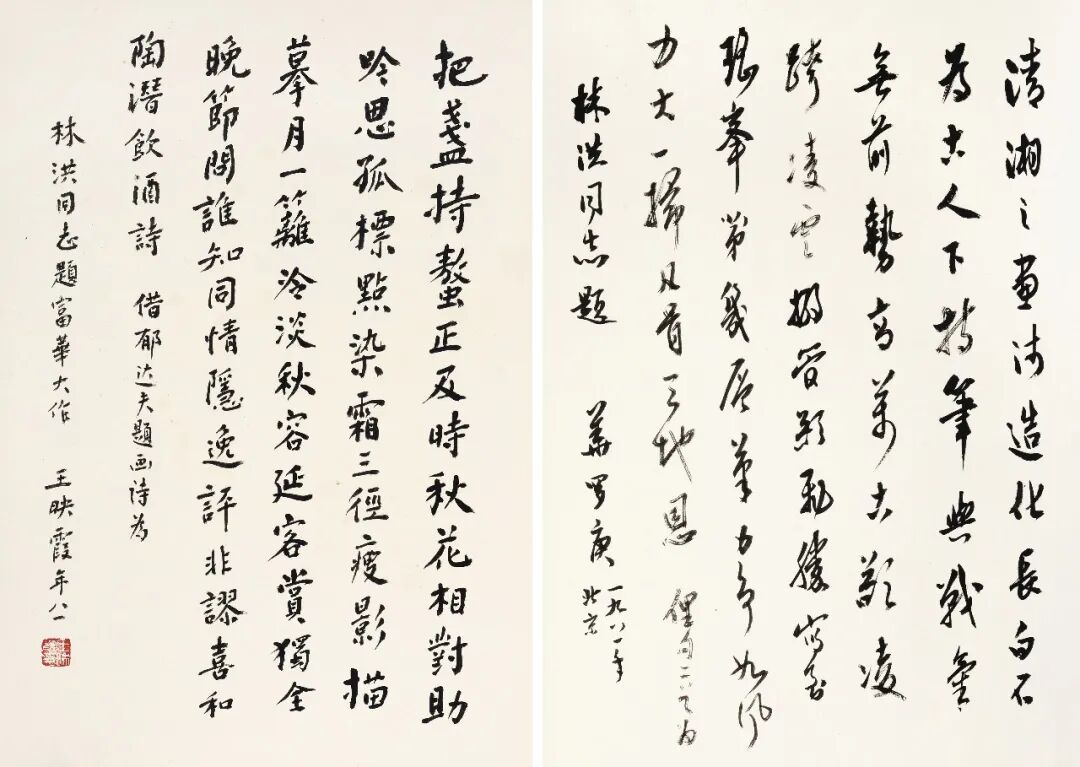 清湘之画造化長白石
為古人下持筆與戰
無前勢高萬古凌
跨凌雲影動騰寫
峯第幾層筆力争如风
力大一掃凡首天地恩 俚句二首为
林洪同志題 華罗庚 一九八一年
北京
把盞持螯正及時秋花相對助
吟思孤標點染霜三徑瘦影描
摹月一籬冷淡秋容延客賞獨全
晚節問誰知同情隱逸評非謬喜和
陶潛飲酒詩 借郁达夫題画诗为
林洪同志題富華大作 王映霞年八一